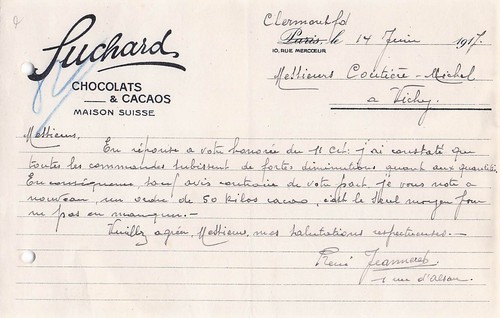 Suchard
CHOCOLATS
& CACAOS
MAISON SUISSE
Clermont fd
Paris, le 14 Juin 1917.
10, RUE MERCŒUR
Messieurs Coutière-Michel
a Vichy.
Messieurs,
En réponse a votre honorée du 11 Ct. j'ai constaté que
toutes les commandes subissent de fortes diminutions quant aux quantités.
En conséquence, sauf avis contraire de votre part, je vous note a
nouveau, un ordre de 50 kilos cacao, c'est le seul moyen pour
ne pas en manquer.-
Veuillez agréer, Messieurs, mes salutations respectueuses.-
René Jeanneret
rue d'Alsace